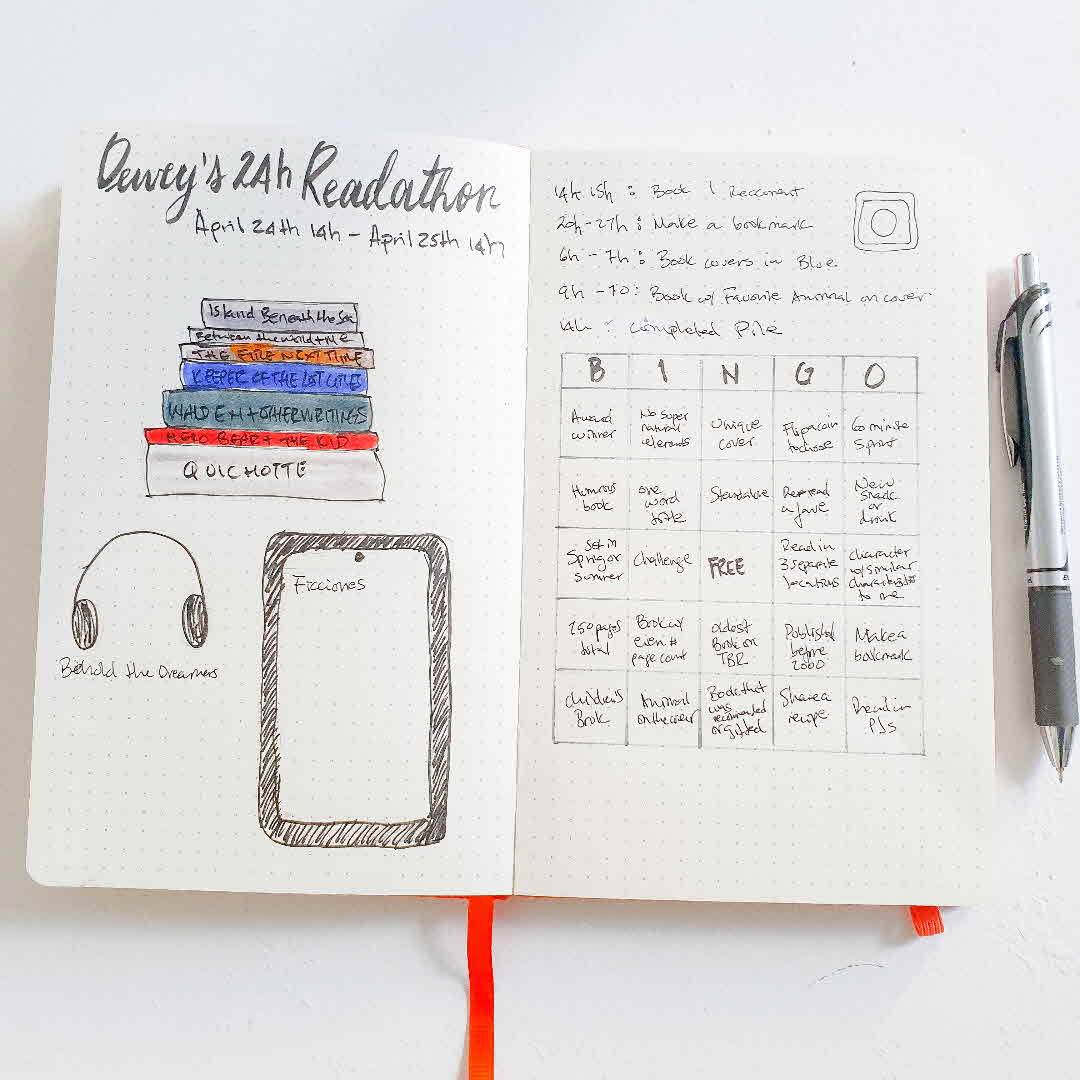 Dewey's 24h Readathon
April 24th 14h - April 25th 14h
Island Beneath the Sea
Between the world + Me
THE FIRE NEXT TIME
KEEPER OF THE LOST CITIES
WALDEN + OTHER WRITINGS
HERO BEAR + THE KID
QUICHOTTE
Behold the Dreamers
Ficciones
14h 15h : Book I Recommend
20h-21h : Make a bookmark
6h - 7h : Book covers in Blue
9h - 10 : Book w/ Favorite Animal on cover
14h : Completed Pile
B I N G O
Award
winner
No super
natural
elements
Unique
cover
Flip a coin
to choose
60 minute
sprint
Humorous
book
One
word
title
Standalone
Reread
a fave
New
snack
or
drink
Set in
Spring or
Summer
Challenge
FREE
Read in
3 separate
locations
Character
w/ similar
to me
250 pages
total
Book w/
even #
page count
Oldest
Book on
TBR
Published
before
2000
Make a
bookmark
Children's
Book
Animal
on the cover
Book that
was
recommended
or gifted
Share a
recipe
Read in
PJs